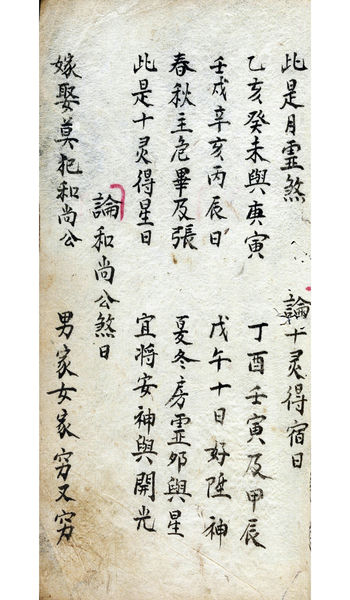 此是月霊煞
論十灵得宿日
乙亥癸未與庚寅 丁酉壬寅及甲辰
壬戌辛亥丙辰日 戊午十日好陞神
春秋主危畢及張 夏冬房霊昴與星
此是十灵得星日 宜将安神與開光
論和尚公煞日
嫁娶莫犯和尚公 男家女家穷又穷